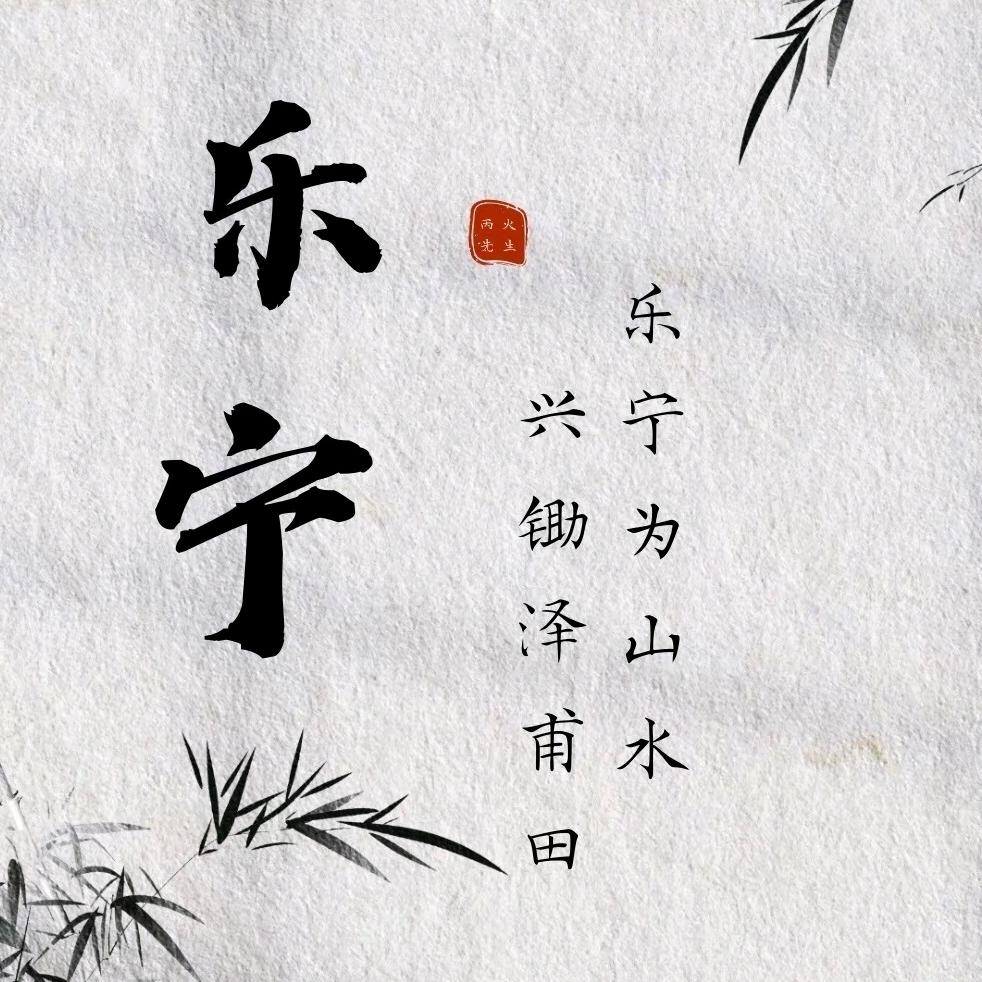 乐宁
丙火
先生
乐宁为山水
兴锄泽甫田